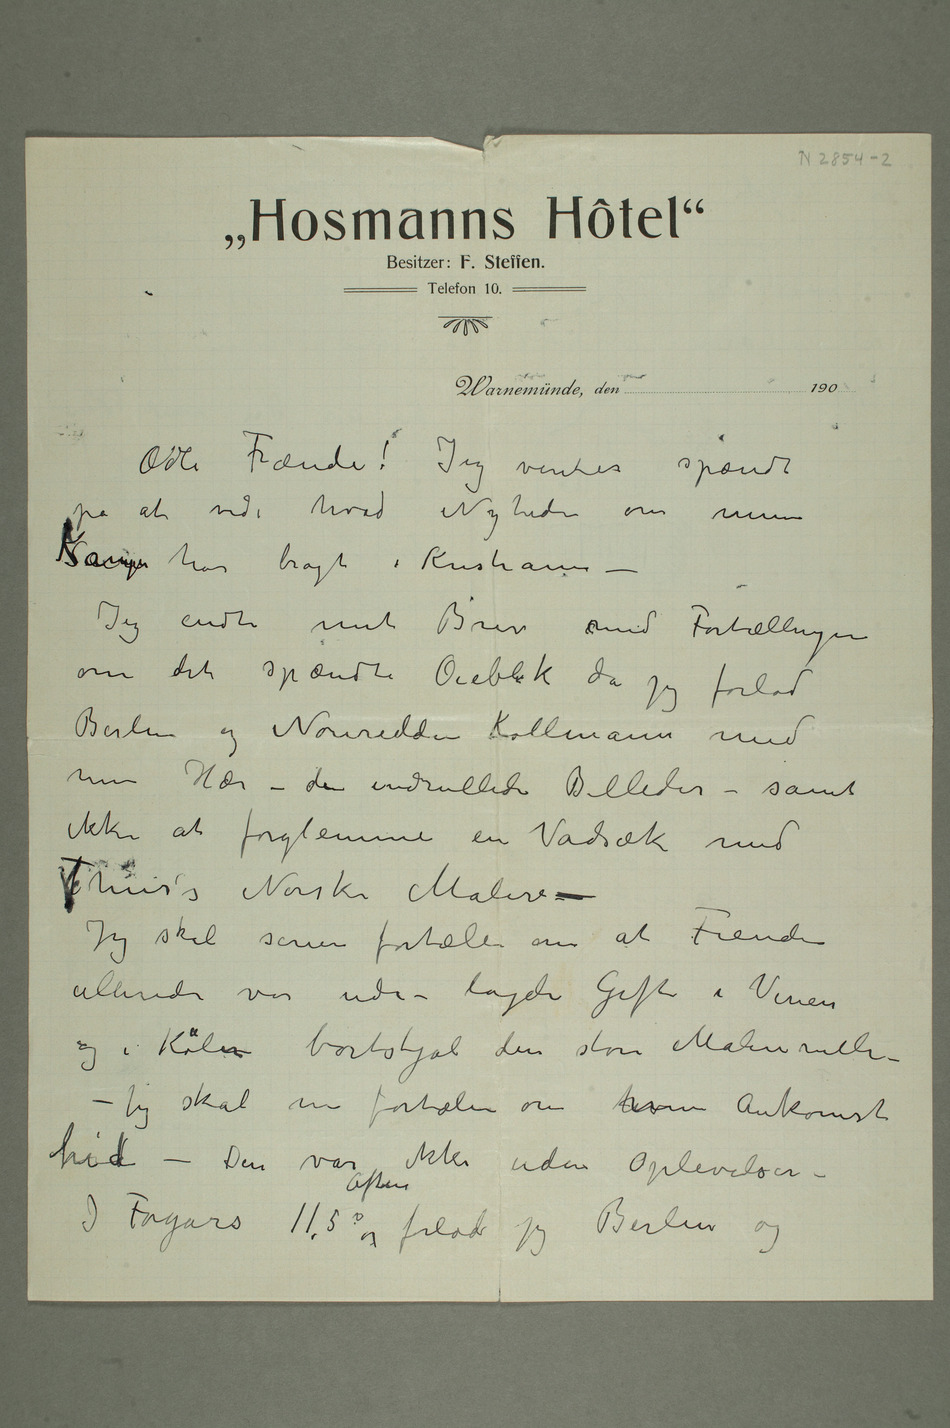 N 2854-2
„Hosmanns Hôtel“
Besitzer: F. Steffen.
Telefon 10.
Warnemünde, den 190
Ædle Frænde! Jeg venter spændt
på at vide hvad Nyheder om min
Kamp har bragt i Kristiania —
Jeg endte mit Brev med Fortællingen
om det spændte Oieblik da jeg forlod
Berlin og Nourredin Kollmann med
min Hær – de indrullede Billeder – samt
ikke at forglemme en Vadsæk med
Thiis's Norske Malere —
Jeg skal senere fortælle om at Fienden
allerede var ude – lagde Gift i Vinen
og i Køln bortstjal den store Malerrulle –
– Jeg skal nu fortælle om min Ankomst
hid — Den var ikke uden Oplevelser –
Aften
I Forgårs 11,5 og forlod jeg Berlin og